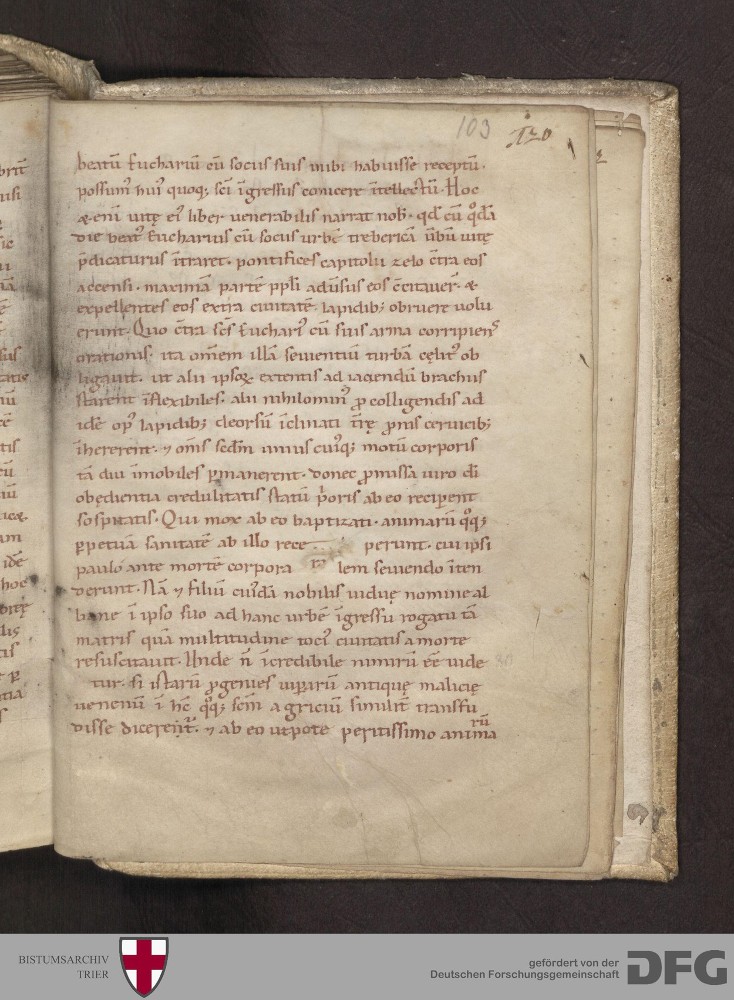 103 120
beatū Euchariū cū sociis suis inibi habuisse receptū.
possum᷒ hui᷒ quoq; sc̄i īgressus conicere ītellectū. Hoc
& eni vitę ei᷒ liber venerabilis narrat nob̄. qđ cū q̄dā
die beat᷒ Eucharius cū sociis urbē trebericā v̄bū vitę
p̄dicaturus ītraret. pontifices capitolii zelo c̄tra eos
accensi. maximā partē ppl̄i adūsus eos c̄citaver̄. &
expellentes eos extra civitatē. lapidib; obruere volu
erunt. Quo c̄tra sc̄s Euchari᷒ cū suis arma corripiens
orationis. ita omēm illā sevientiū turbā cęlit᷒ ob
ligavit. ut alii ipsoꝝ extentis ad iaciendū brachiis
starent īflexibiles. alii nihilomin᷒ ꝓ colligendis ad
idē op᷒ lapidib; deorsū īclinati t̄rę pronis cervicib;
īhererent. ⁊ om̄s scđm unius cui᷒q; motū corporis
tā diu īmobiles ꝑmanerent. donec ꝓmissa viro dī
obędientia credulitatis statū p̄oris ab eo reciꝑent
sospitatis. Qui mox ab eo baptizati. animarū q̊q;
ꝑpetuā sanitatē ab illo rece perunt. cui ipsi
paulo ante mortē corpora lem seviendo īten
derunt. Nā ⁊ filiū cui᷒dā nobilis viduę nomine al
bane ī ipso suo ad hanc urbē īgressu rogatu tā
matris quā multitudine toci᷒ civitatis a morte
resuscitavit. Unde n̄ īcredibile nimirū ēē vide
tur. si istarū ꝓgenies viꝑarū antiquę malicię
venenū ī hc̄ q̊q; sc̄m agriciū similit̄ transfu
disse dicerent̄. ⁊ ab eo utpote peritissimo anima
rū
BISTUMSARCHIV
TRIER
gefördert von der
Deutschen Forschungsgemeinschaft
DFG